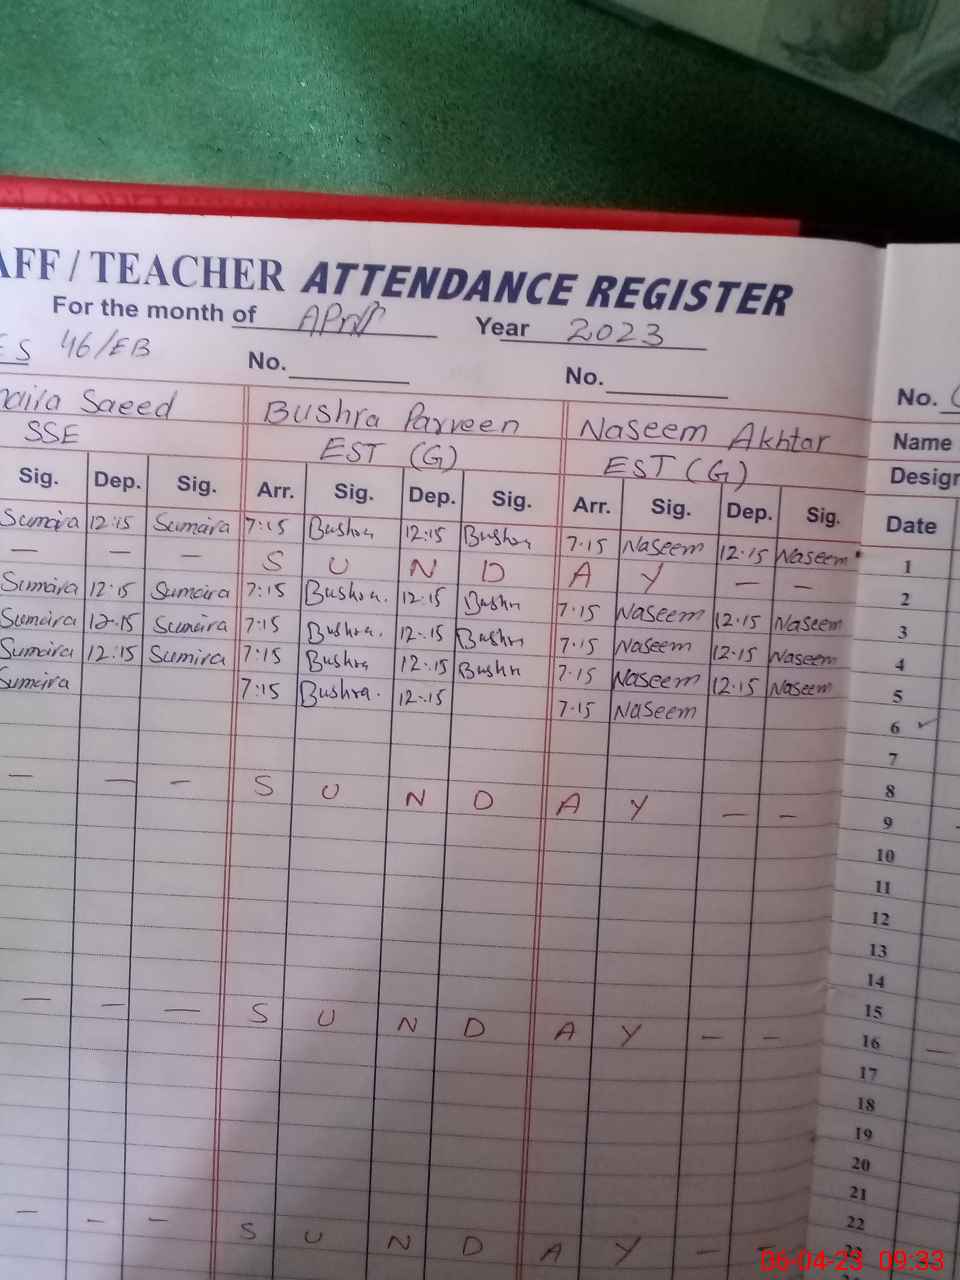 AFF / TEACHER ATTENDANCE REGISTER
For the month of April Year 2023
ES 46/EB No. No.
No.
maira Saeed Bushra Parveen Naseem Akhtar Name
SSE EST (G) EST (G) Design
Sig. Dep. Sig. Arr. Sig. Dep. Sig. Arr. Sig. Dep. Sig. Date
Sumaira 12:15 Sumaira 7:15 Bushra 12:15 Bushra 7.15 Naseem 12.15 Naseem 1
— — — S U N D A Y — — 2
Sumaira 12:15 Sumaira 7:15 Bushra. 12:15 Bushr 7.15 Naseem 12.15 Naseem 3
Sumaira 12:15 Sumaira 7:15 Bushra. 12:15 Bushra 7.15 Naseem 12.15 Naseem 4
Sumaira 12:15 Sumira 7:15 Bushra 12:15 Bushr 7.15 Naseem 12.15 Naseem 5
Sumaira 7:15 Bushra. 12:15 7.15 Naseem 6 ✓
7
8
— — — S U N D A Y — — 9
10
11
12
13
14
15
— — — S U N D A Y — — 16 —
17
18
19
20
21
22
— — — S U N D A Y — — 23
06-04-23 09:33